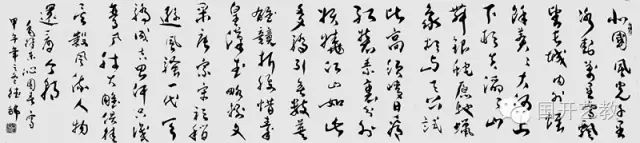 北國風光千里
冰封萬里雪飄
望長城內外惟
餘莽莽大河上
下頓失滔滔山
舞銀蛇原馳蠟
象欲與天公試
比高須晴日看
紅裝素裹分外
妖嬈江山如此
多嬌引無數英
雄競折腰惜秦
皇漢武略輸文
采唐宗宋祖稍
遜風騷一代天
驕成吉思汗只識
彎弓射大雕俱往
矣數風流人物
還看今朝
毛澤東沁園春雪
甲午年之冬
国开艺教